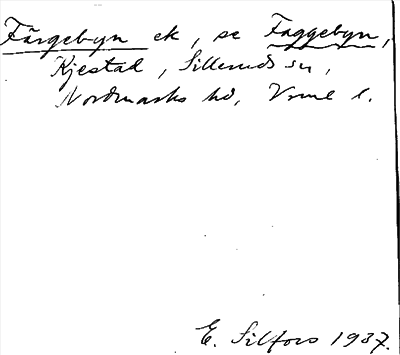 Färgebyn ek, se Faggebyn,
Kjestad, Silleruds sn,
Nordmarks hd, Vrml l.
E. Silfors 1937.